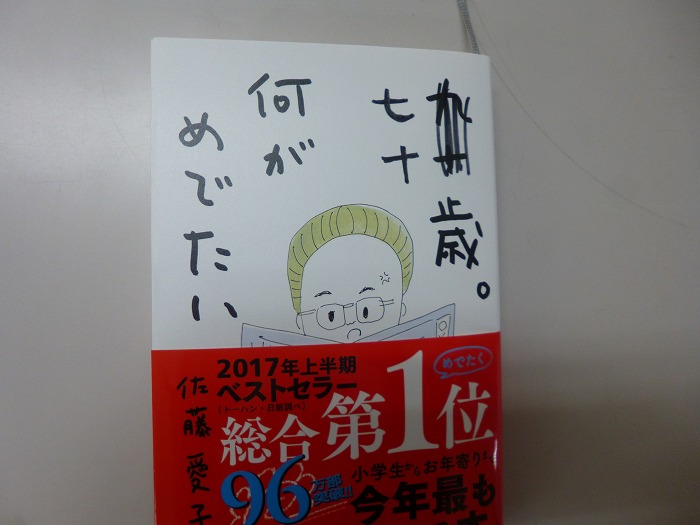 歳。
七十
何が
めでたい
佐藤愛子
2017年上半期
ベストセラー
(トーハン・日販調べ)
めでたく
総合第1位
96万部
突破!!
小学生からお年寄りま
今年最も